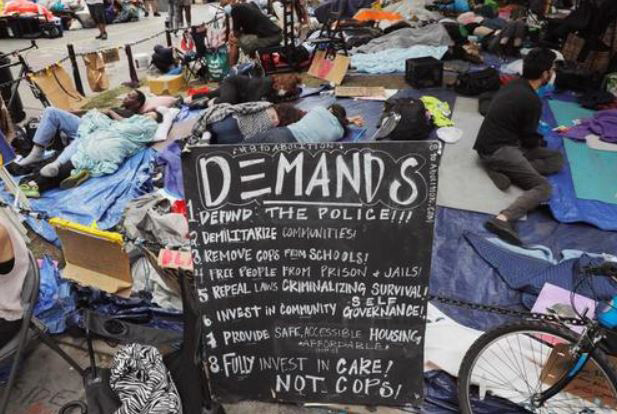 #8 TO ABOLITION
8 TO ABOLITION.COM
DEMANDS
1. DEFUND THE POLICE!!!
2. DEMILITARIZE COMMUNITIES!
3 REMOVE COPS FROM SCHOOLS!
4 FREE PEOPLE FROM PRISON & JAILS!
5 REPEAL LAWS CRIMINALIZING SURVIVAL!
6 INVEST IN COMMUNITY SELF GOVERNANCE!
7 PROVIDE SAFE, ACCESSIBLE HOUSING,
AFFORDABLE
8. FULLY INVEST IN CARE!
NOT COPS!